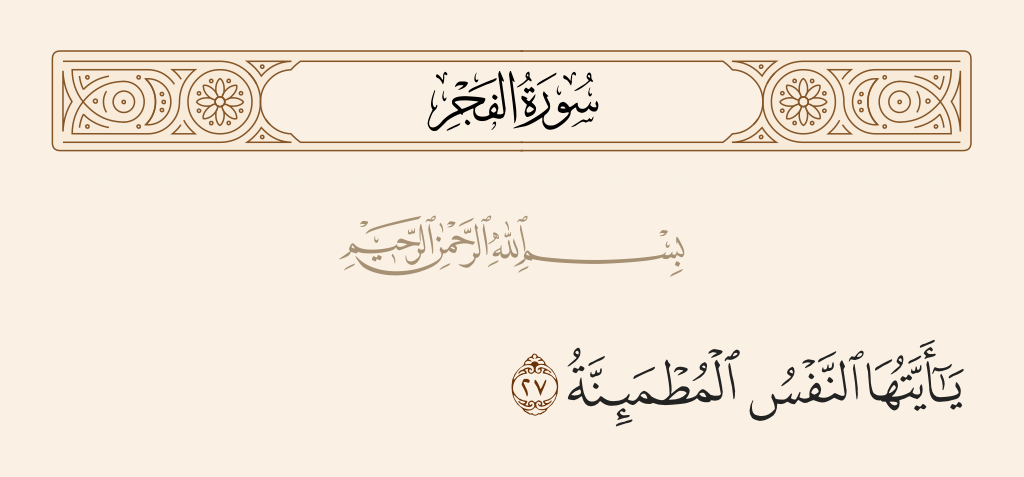 سُورَةُ الفَجْرِ
بِسْمِ ٱللَّهِ ٱلرَّحْمَٰنِ ٱلرَّحِيمِ
يَٰٓأَيَّتُهَا ٱلنَّفْسُ ٱلْمُطْمَئِنَّةُ ٢٧